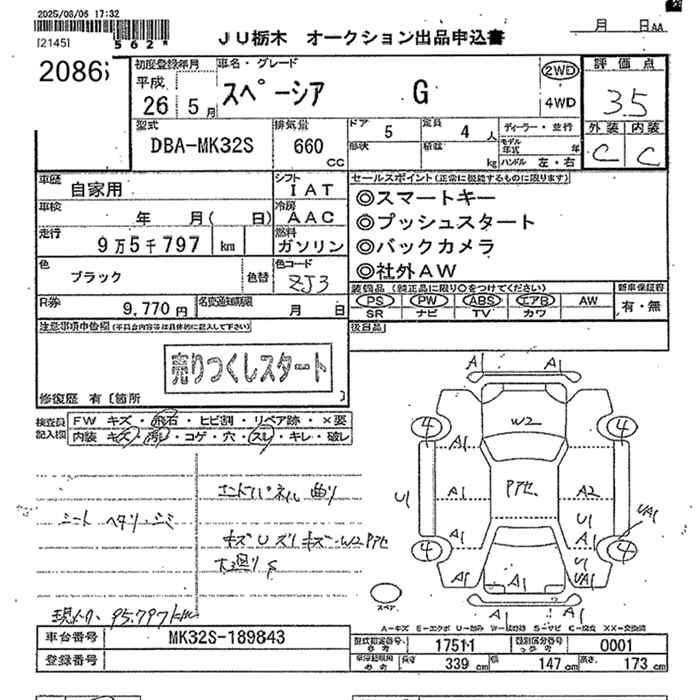 2025/08/06 17:32
[2145]
562*
JU栃木 オークション出品申込書
月 日 AA
2086
初度登録年月
平成
26 5月
車名・グレード
スペーシア G
2WD
4WD
評価点
3.5
外装 内装
C C
型式
DBA-MK32S
排気量
660
CC
ドア
5
定員
4人
形状
積載
kg
ディーラー・並行
モデル年式 年
ハンドル 左・右
車歴
自家用
シフト
IAT
車検
年 月( 日)
冷房
AAC
走行
9万5千797 km
燃料
ガソリン
色
ブラック
色替
色コード
ZJ3
セールスポイント(正常に機能するものに限ります)
◎スマートキー
◎プッシュスタート
◎バックカメラ
◎社外AW
装備品(純正品に限り○をつけてください)
PS PW ABS エアB AW
SR ナビ TV カワ
新車保証書
有・無
R券
9,770円
名変通知期限
月 日
後日品
注意事項申告欄(不具合内容等は具体的に記入して下さい)
売りつくしスタート
修復歴 有〔箇所 〕
検査員記入欄
FW キズ・飛石・ヒビ割・リペア跡・×要
内装 キズ・汚レ・コゲ・穴・スレ・キレ・破レ
シート ヘタリ・シミ
エンドパネル 曲り
キズ U ズリ キズ・W2 Pアセ
現メーター 95,797km
A1 A1
4 W2 4
A1
A1 Pアセ A2
U1 U1 UA1
A1 A1
4 4
A1 A1 U1 UA1
A1 A1
スペア
A-キズ E-エクボ U-凹み W-波打ち S-サビ C-腐食 XX-交換済
車台番号
MK32S-189843
登録番号
型式指定番号
17511
類別区分番号
0001
長さ 339cm
幅 147cm
高さ 173cm